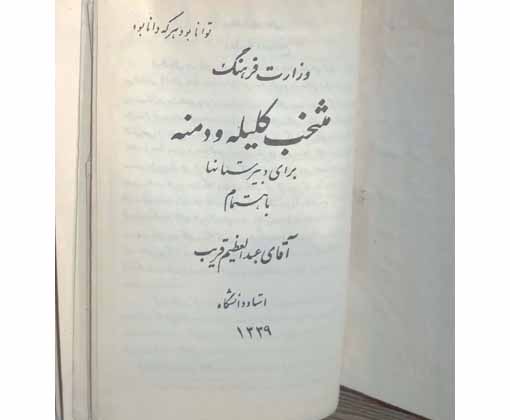 توانا بود هر که دانا بود
وزارت فرهنگ
منتخب کلیله و دمنه
برای دبیرستانها
باهتمام
آقای عبدالعظیم قریب
استاد دانشگاه
۱۳۳۹